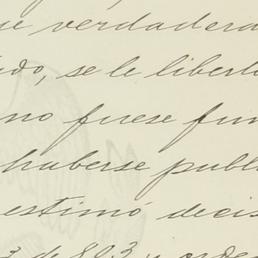 ue verdadera
do, se le libert
no fuese fun
haberse publ
estimó decis
3 de 893 y orden